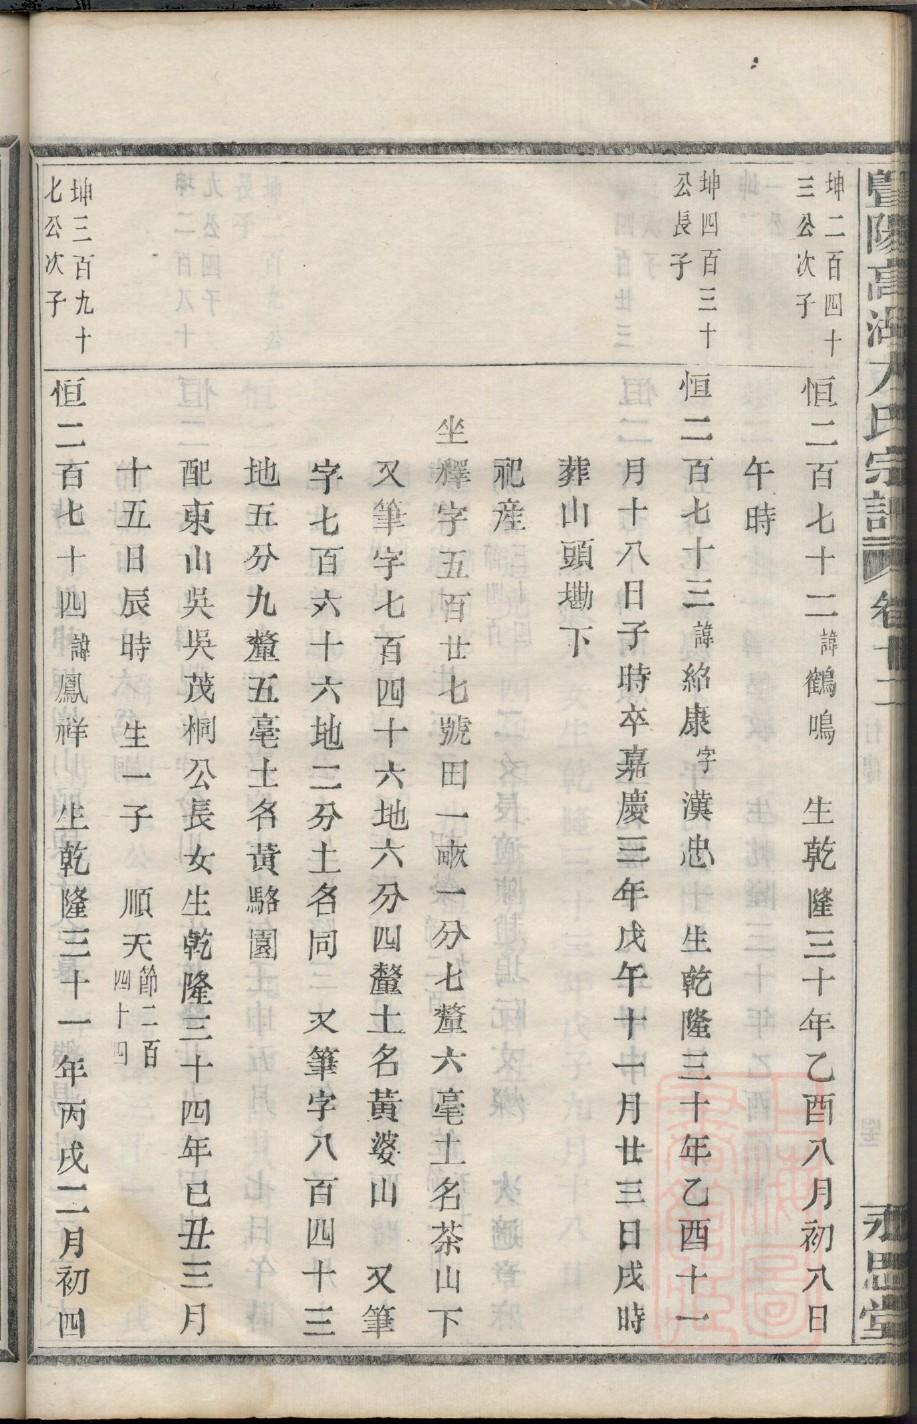 暨陽高湖方氏宗譜 卷十二
永思堂
坤二百四十
三公次子
恒二百七十二諱鶴鳴 生乾隆三十年乙酉八月初八日
午時
坤四百三十
公長子
恒二百七十三諱紹康字漢忠 生乾隆三十年乙酉十一
月十八日子時卒嘉慶三年戊午十一月廿三日戌時
葬山頭墈下
祀産
坐釋字五百廿七號田一畝一分七釐六毫土名茶山下
又筆字七百四十六地六分四釐土名黃婆山 又筆
字七百六十六地二分土名同 又筆字八百四十三
地五分九釐五毫土名黃駱園
配東山吳吳茂桐公長女生乾隆三十四年己丑三月
十五日辰時 生一子 順天節二百四十四
坤三百九十
七公次子
恒二百七十四諱鳳祥 生乾隆三十一年丙戌二月初四